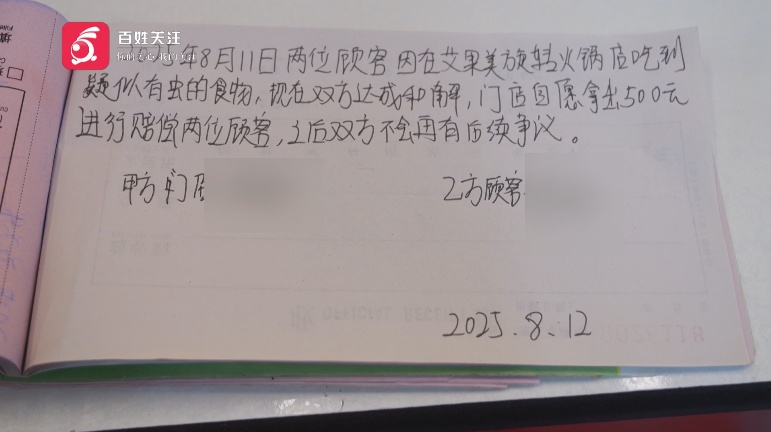 百姓关注
年8月11日两位顾客因在艾果美旋转火锅店吃到
疑似有虫的食物,现在双方达成和解,门店自愿拿出500元
进行赔偿两位顾客,之后双方不会再有后续争议。
甲方门店
乙方顾客
2025.8.12